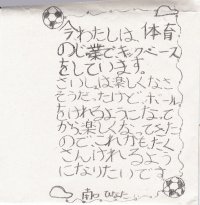 今わたしは、体育
のじ業でキックベース
をしています。
さいしょは楽しくなさ
そうだったけど、ボール
をけれるようになって
から楽しくなってきた
ので、これからもたく
さんけれるよう
になりたいです
ひなた